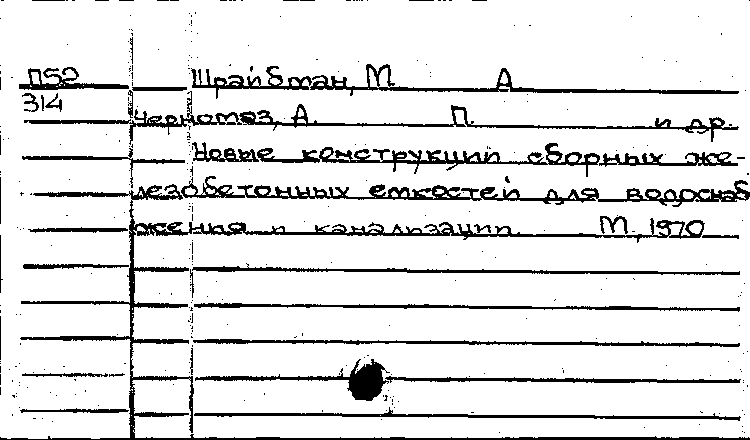 П52 Шрайбман, М. А.
314 Черномаз, А. П. и др.
Новые конструкции сборных же-
лезобетонных емкостей для водоснаб
жения и канализации. М., 1970